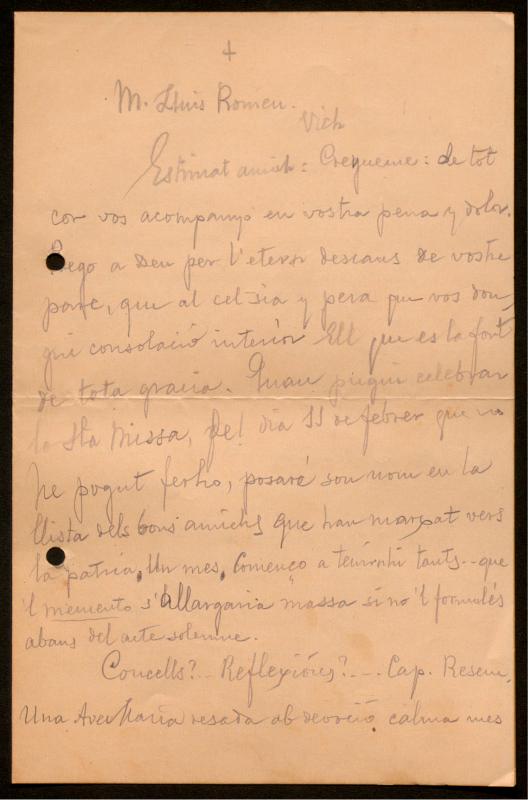 +
M. Lluis Romeu.
Vich
Estimat amich: Cregueme: de tot
cor vos acompanyo en vostra pena y dolor.
Prego a Deu per l'etern descans de vostre
pare, que al cel sia y pera que vos don,
gui consolació interior Ell que es la font
de tota gracia. Quan pugui celebrar
la Sta Missa, del dia 11 de febrer que no
he pogut ferho, posaré son nom en la
llista dels bons amichs que han marxat vers
la patria. Un mes. Començo a tenirhi tants... que
'l memento s'allargaria massa si no 'l formulés
abans del acte solemne.
Concells?... Reflexións?... Cap. Resem.
Una Ave Maria resada ab devoció calma mes